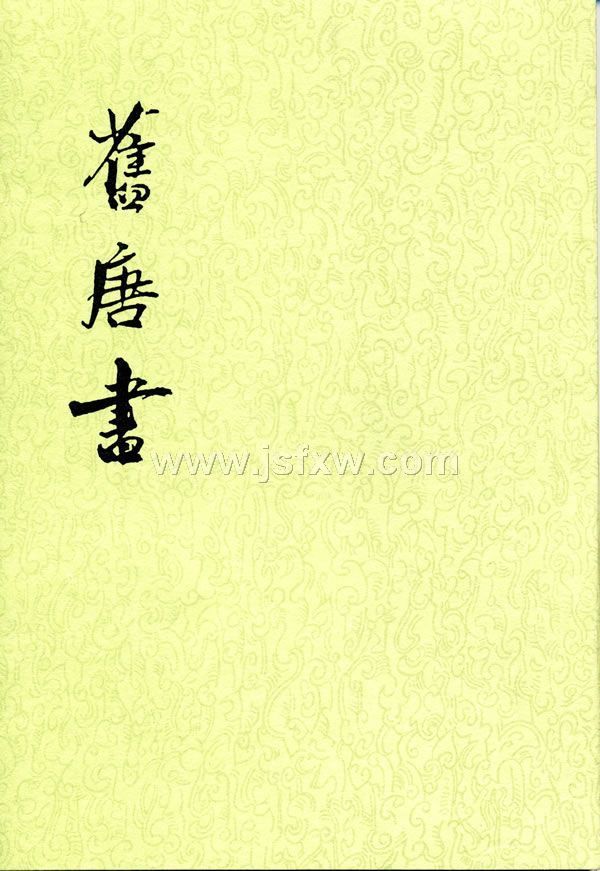 舊唐書
www.jsfxw.com